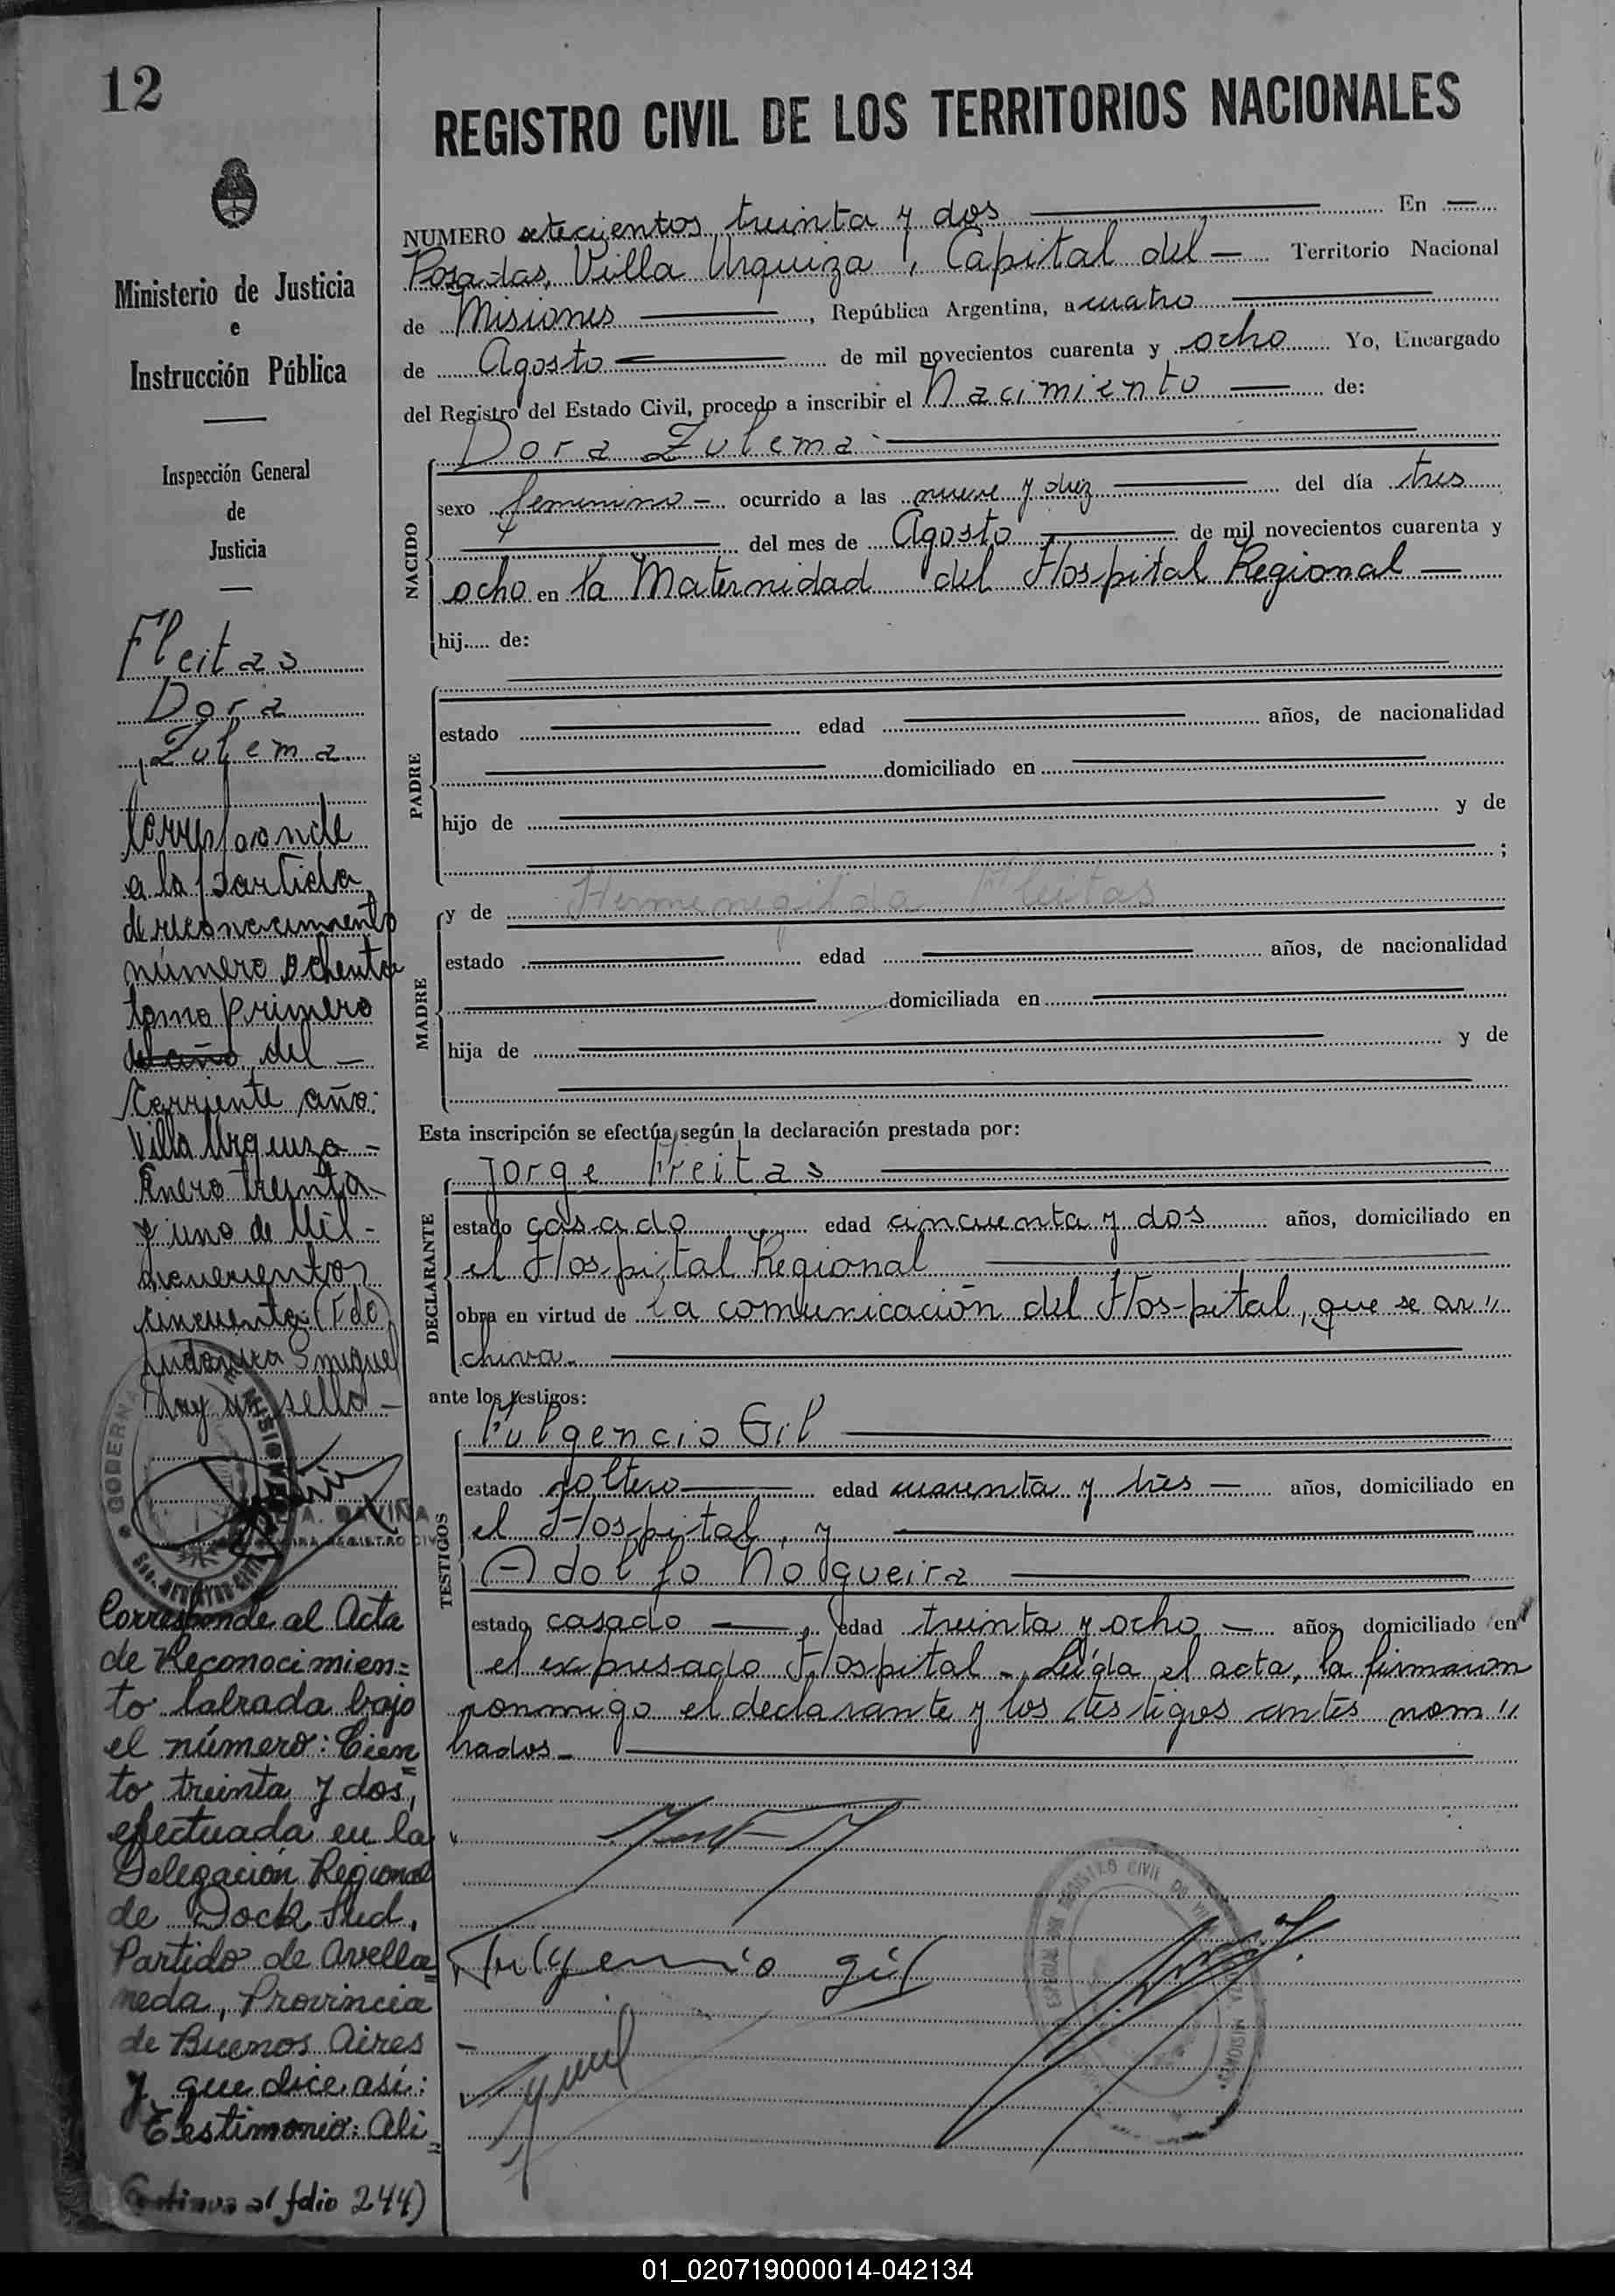 12
REGISTRO CIVIL DE LOS TERRITORIOS NACIONALES
Ministerio de Justicia
e
Instrucción Pública
Inspección General
de
Justicia
Fleitas
Dora
Zulema
Corresponde
a la partida
de reconocimiento
número ochenta
tomo primero
del año del —
corriente año:
Villa Urquiza —
Enero treinta
y uno de Mil —
novecientos
cincuenta: (Fdo)
hay un sello —
Corresponde al Acta
de Reconocimien=
to labrada bajo
el número: Cien
to treinta y dos,
efectuada en la
Delegación Regional
de Dock Sud,
Partido de Avella
neda, Provincia
de Buenos Aires
y que dice así:
Testimonio: Ali
Continua al folio 244)
NUMERO setecientos treinta y dos — En —
Posadas, Villa Urquiza, Capital del — Territorio Nacional
de Misiones —, República Argentina, a cuatro —
de Agosto — de mil novecientos cuarenta y ocho Yo, Encargado
del Registro del Estado Civil, procedo a inscribir el Nacimiento — de:
Dora Zulema —
NACIDO
sexo femenino — ocurrido a las nueve y diez — del día tres
— del mes de Agosto — de mil novecientos cuarenta y
ocho en la Maternidad del Hospital Regional —
hij..... de:
PADRE
estado — edad — años, de nacionalidad
— domiciliado en —
hijo de — y de
— ;
MADRE
y de Hermenegilda Fleitas
estado — edad — años, de nacionalidad
— domiciliada en —
hija de — y de
Esta inscripción se efectúa según la declaración prestada por:
DECLARANTE
Jorge Freitas —
estado casado edad cincuenta y dos años, domiciliado en
el Hospital Regional —
obra en virtud de la comunicación del Hospital, que se ar"
chiva. —
ante los testigos:
TESTIGOS
Fulgencio Gil —
estado soltero — edad cuarenta y tres — años, domiciliado en
el Hospital, y —
Adolfo Nogueira —
estado casado —, edad treinta y ocho — años, domiciliado en
el expresado Hospital — Leída el acta, la firmaron
conmigo el declarante y los testigos antes nom"
brados. —
Fulgencio gil
01_020719000014-042134